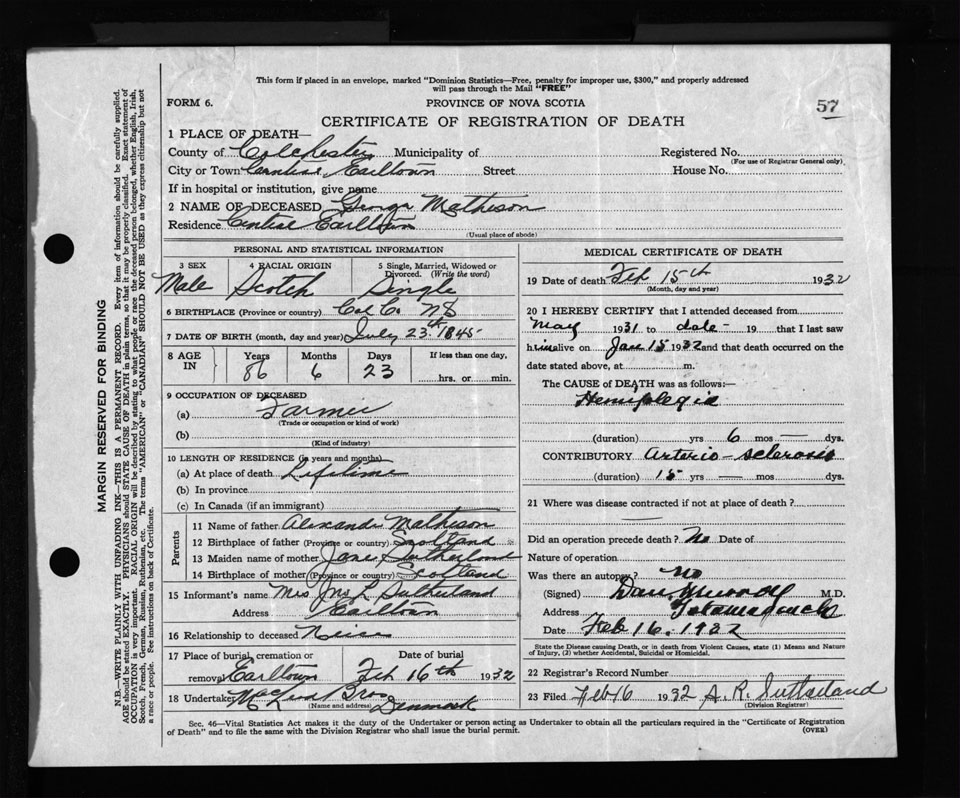 This form if placed in an envelope, marked "Dominion Statistics—Free, penalty for improper use, $300," and properly addressed
will pass through the Mail "FREE"
FORM 6.
PROVINCE OF NOVA SCOTIA
57
CERTIFICATE OF REGISTRATION OF DEATH
1 PLACE OF DEATH—
County of Colchester Municipality of Registered No.
(For use of Registrar General only)
City or Town Central Earltown Street House No.
If in hospital or institution, give name
2 NAME OF DECEASED George Matheson
Residence Central Earltown
(Usual place of abode)
PERSONAL AND STATISTICAL INFORMATION
3 SEX 4 RACIAL ORIGIN 5 Single, Married, Widowed or
Divorced. (Write the word)
Male Scotch Single
6 BIRTHPLACE (Province or country) Col Co. NS
7 DATE OF BIRTH (month, day and year) July 23rd 1845
8 AGE IN Years Months Days If less than one day,
86 6 23 hrs. or min.
9 OCCUPATION OF DECEASED
(a) Farmer
(Trade or occupation or kind of work)
(b)
(Kind of industry)
10 LENGTH OF RESIDENCE (in years and months)
(a) At place of death Lifetime
(b) In province
(c) In Canada (if an immigrant)
Parents
11 Name of father Alexander Matheson
12 Birthplace of father (Province or country) Scotland
13 Maiden name of mother Jane Sutherland
14 Birthplace of mother (Province or country) Scotland
15 Informant's name Mrs Jas L Sutherland
Address Earltown
16 Relationship to deceased Niece
17 Place of burial, cremation or Date of burial
removal Earltown Feb 16th 1932
18 Undertaker MacLeod Bros
(Name and address) Denmark
MEDICAL CERTIFICATE OF DEATH
19 Date of death Feb 15th 1932
(Month, day and year)
20 I HEREBY CERTIFY that I attended deceased from
May 1931 to date 19 that I last saw
h im alive on Jan 15 1932 and that death occurred on the
date stated above, at m.
The CAUSE of DEATH was as follows:—
Hemiplegia
(duration) yrs 6 mos — dys.
CONTRIBUTORY Arterio-sclerosis
(duration) 15 yrs — mos dys.
21 Where was disease contracted if not at place of death?
—
Did an operation precede death? No Date of
Nature of operation
Was there an autopsy? No
(Signed) Dan Murray M.D.
Address Tatamagouche
Date Feb 16. 1932
State the Disease causing Death, or in death from Violent Causes, state (1) Means and Nature
of Injury, (2) whether Accidental, Suicidal or Homicidal.
22 Registrar's Record Number
23 Filed Feb 16 1932 A. R. Sutherland
(Division Registrar)
Sec. 46—Vital Statistics Act makes it the duty of the Undertaker or person acting as Undertaker to obtain all the particulars required in the "Certificate of Registration
of Death" and to file the same with the Division Registrar who shall issue the burial permit.
(OVER)
MARGIN RESERVED FOR BINDING
N.B.—WRITE PLAINLY WITH UNFADING INK—THIS IS A PERMANENT RECORD. Every item of information should be carefully supplied.
AGE should be stated EXACTLY. PHYSICIANS should STATE CAUSE OF DEATH in plain terms, so that it may be properly classified. Exact statement of
OCCUPATION is very important. RACIAL ORIGIN will be described by stating to what people or race the deceased person belonged, whether English, Irish,
Scotch, French, German, Russian, Ruthenian, etc. The terms "AMERICAN" or "CANADIAN" SHOULD NOT BE USED as they express citizenship but not
a race or people. See instructions on back of Certificate.